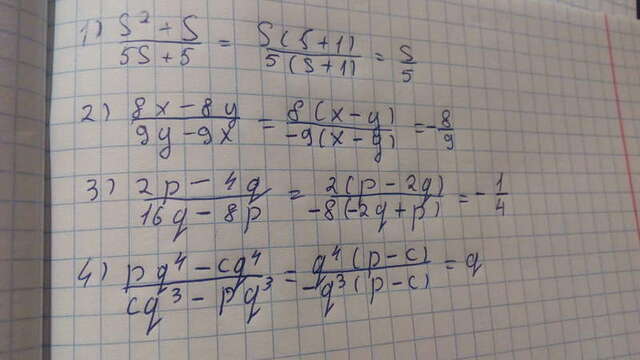 1) (S² + S)/(5S + 5) = S(S+1)/5(S+1) = S/5
2) (8x - 8y)/(9y - 9x) = 8(x - y)/-9(x - y) = -8/9
3) (2p - 4q)/(16q - 8p) = 2(p - 2q)/-8(-2q + p) = -1/4
4) (pq⁴ - cq⁴)/(cq³ - pq³) = q⁴(p - c)/-q³(p - c) = q